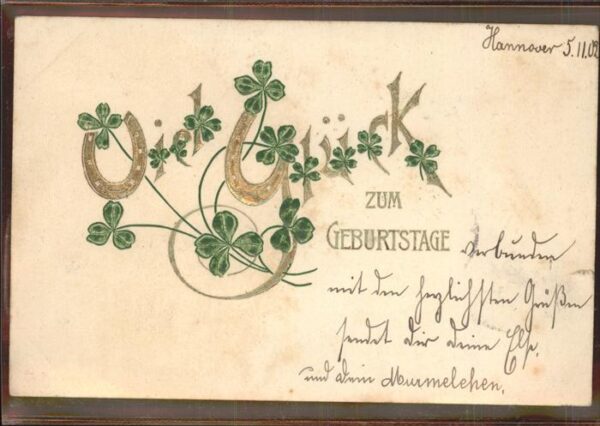 Hannover 5.11.02
Viel Glück
ZUM
GEBURTSTAGE
verbunden
mit den herzlichsten Grüßen
sendet Dir Deine Else.
und Dein Murmelchen.